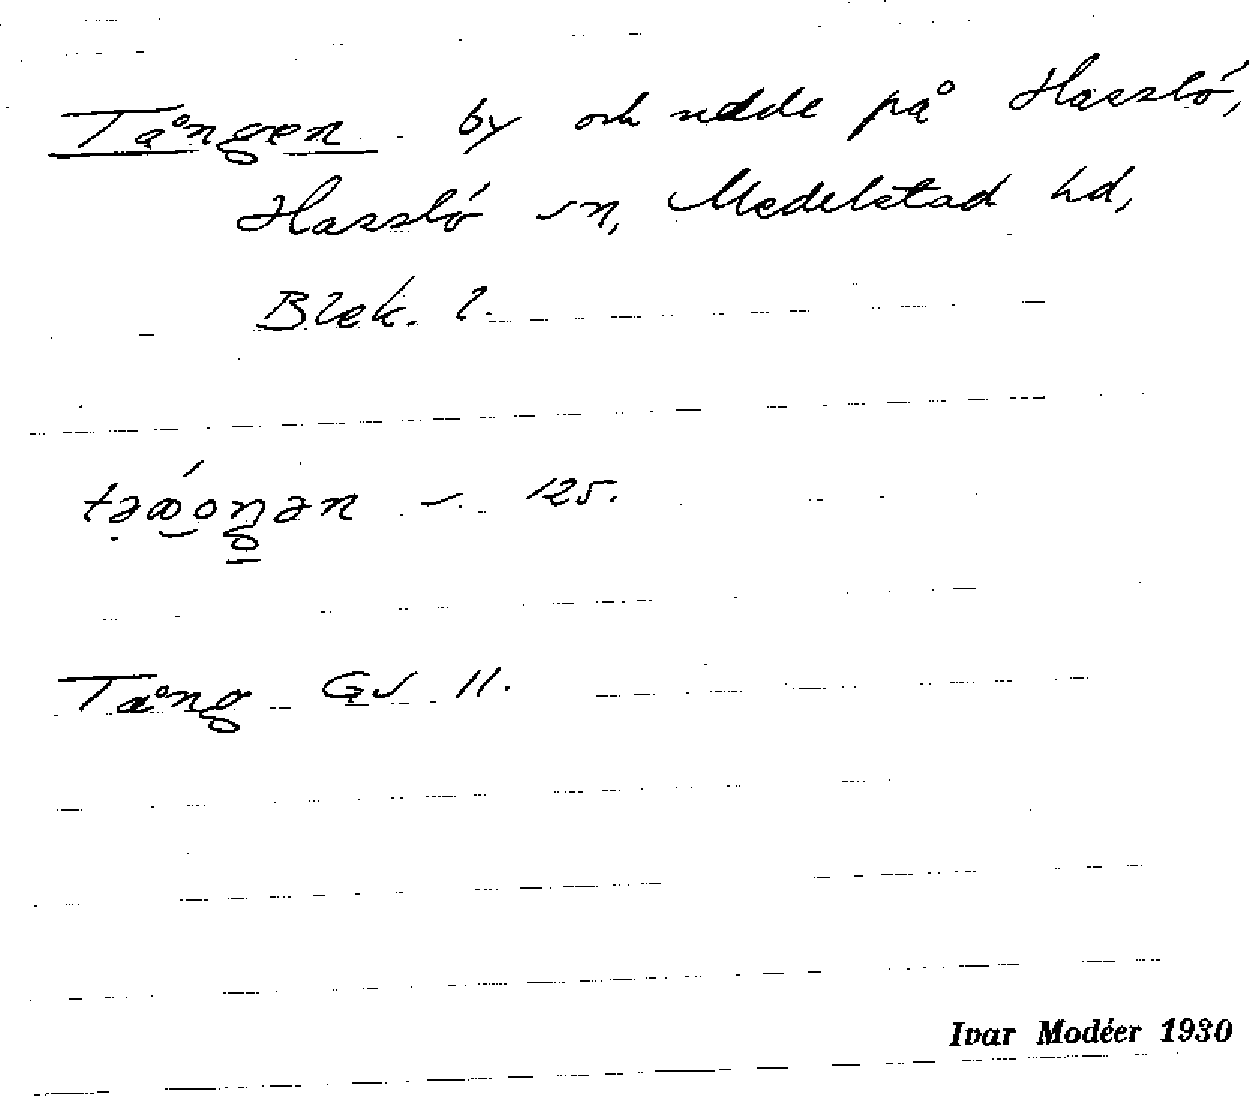 Tången by och udde på Hassló,
Hassló sn, Medelstad hd,
Blek. l.
125.
Tång GS 11.
Ivar Modéer 1930